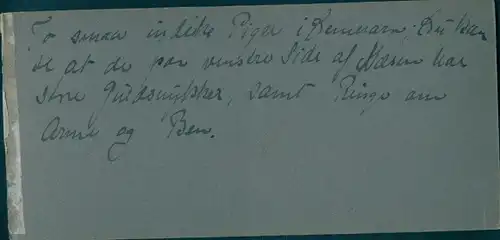 To smaa indiske Piger i Demerara. Du kan
se at de paa venstre Side af Næsen har
store Guldsmykker, samt Ringe om
Arme og Ben.